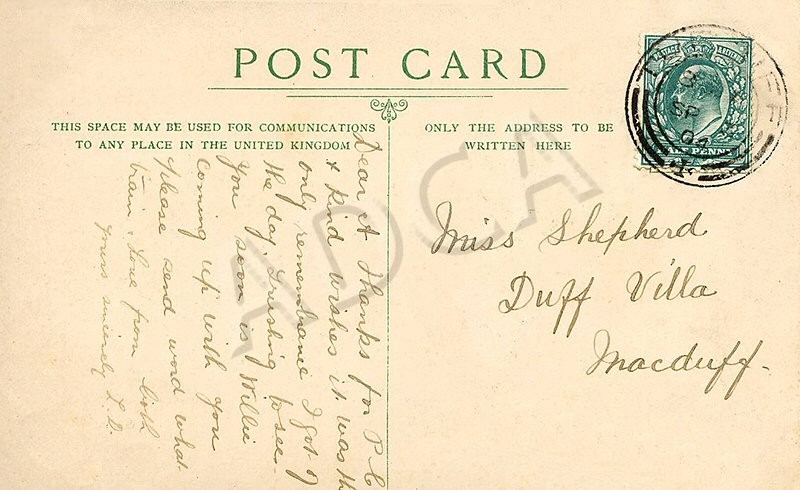 POST CARD
THIS SPACE MAY BE USED FOR COMMUNICATIONS
TO ANY PLACE IN THE UNITED KINGDOM
ONLY THE ADDRESS TO BE
WRITTEN HERE
Miss Shepherd
Duff Villa
Macduff.
Dear A Thanks for P.C
& kind wishes it was th
only remembrance I got of
the day, trusting to see
you soon is Willie
coming up with you
please send word what
train. Love from both
yours sincerely L.D.
ADCA
SP